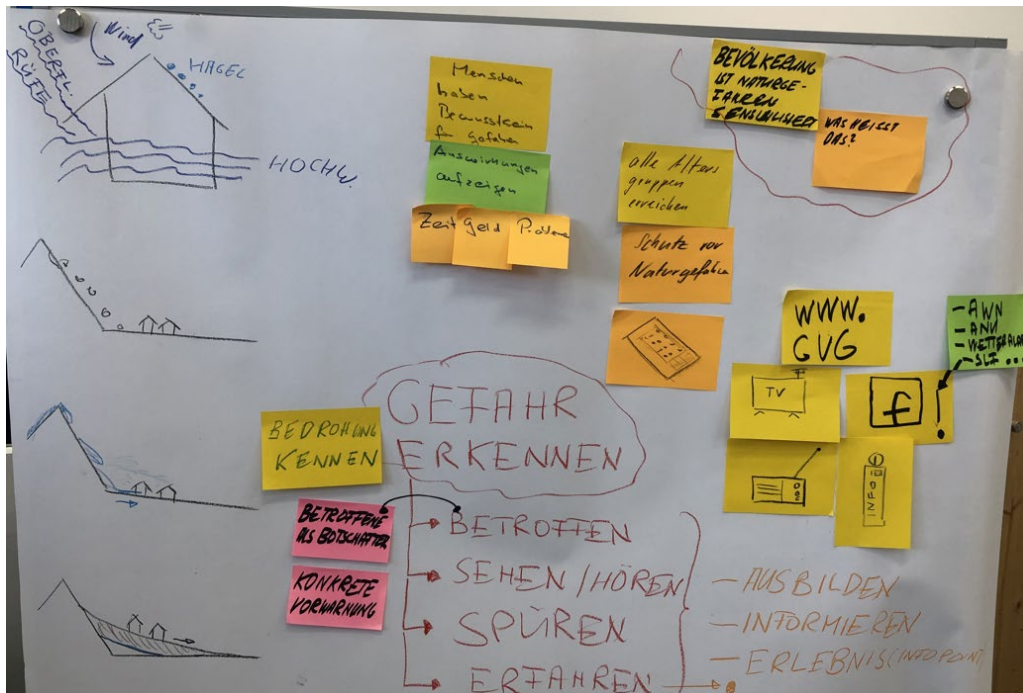 OBERFL.
RÜFE
Wind
HAGEL
HOCHW.
Menschen
haben
Bewusstsein
für gefahren
Auswirkungen
aufzeigen
Zeit
Geld
Probleme
BEVÖLKERUNG
IST NATURGE-
FAHREN
SENSIBILISIERT
WAS HEISST
DAS?
alle Alters
gruppen
erreichen
Schutz vor
Naturgefahren
WWW.
GVG
- AWN
- ANU
- WETTERALARM
- SLF ...
TV
f !
INFO
i
BEDROHUNG
KENNEN
GEFAHR
ERKENNEN
BETROFFENE
ALS BOTSCHAFTER
KONKRETE
VORWARNUNG
BETROFFEN
SEHEN / HÖREN
SPÜREN
ERFAHREN
- AUSBILDEN
- INFORMIEREN
- ERLEBNIS (INFOPOINT)